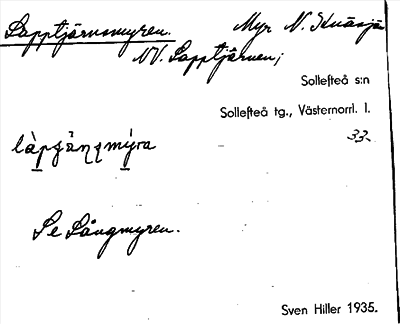 Lapptjärnsmyren. Myr N. Knäsjön
NV. Lapptjärnen;
Sollefteå s:n
Sollefteå tg., Västernorrl. l.
33.
Se Långmyren.
Sven Hiller 1935.